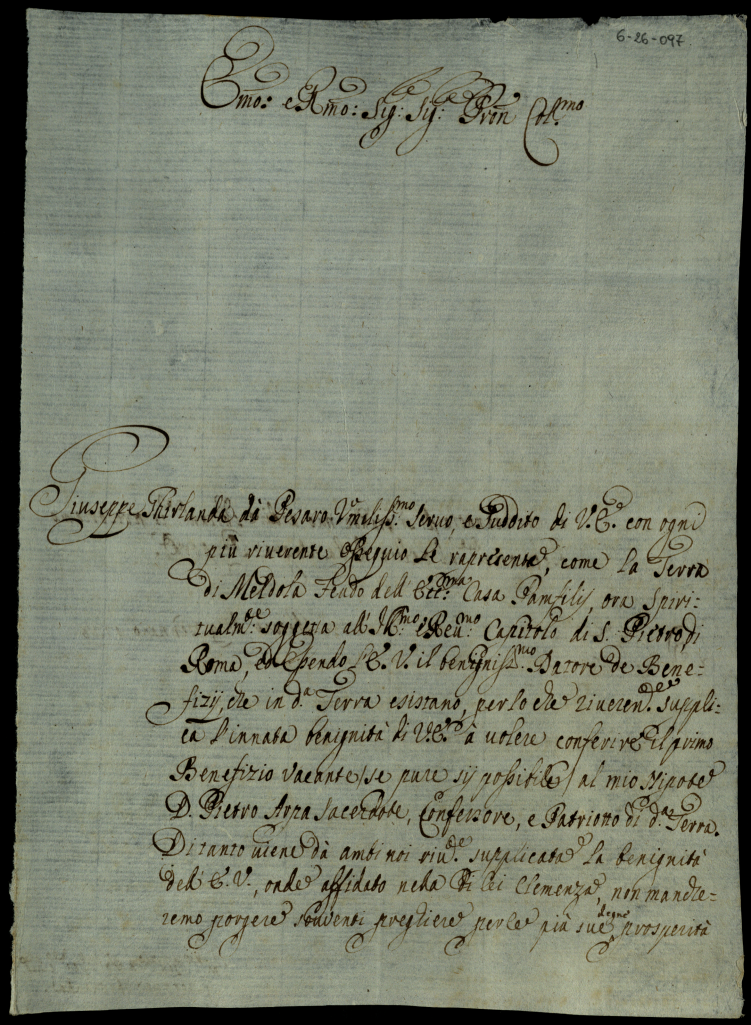 6-26-097
Emo: e Rmo: Sig: Sig: Pron Col.mo
Giuseppe Ghirlanda dà Pesaro Vmiliss.mo Seruo, e Suddito di V.E. con ogni
più riuerente Ossequio Le rapresenta, come la Terra
di Meldola Feudo dell' Ecc.ma Casa Pamfilij, ora Spiri-
tualm.te soggetta all' Ill.mo e Reu.mo Capitolo di S. Pietro di
Roma, ed essendo L'E.V. il benigniss.mo Datore de Bene-
fizij, che in d.a Terra esistano, per lo che riueren.te suppli-
ca l'innata benignità di V.E. à uolere conferire il primo
Benefizio vacante (se pure sij possibile) al mio Nipote
D. Pietro Arpa Sacerdote, Confessore, e Patriotto di d.a Terra.
Di tanto uiene dà ambi noi riu.te supplicata la benignità
dell' E.V., onde affidato nella di lei Clemenza, non manche-
remo porgere souuenti preghiere per le più sue degne prosperità